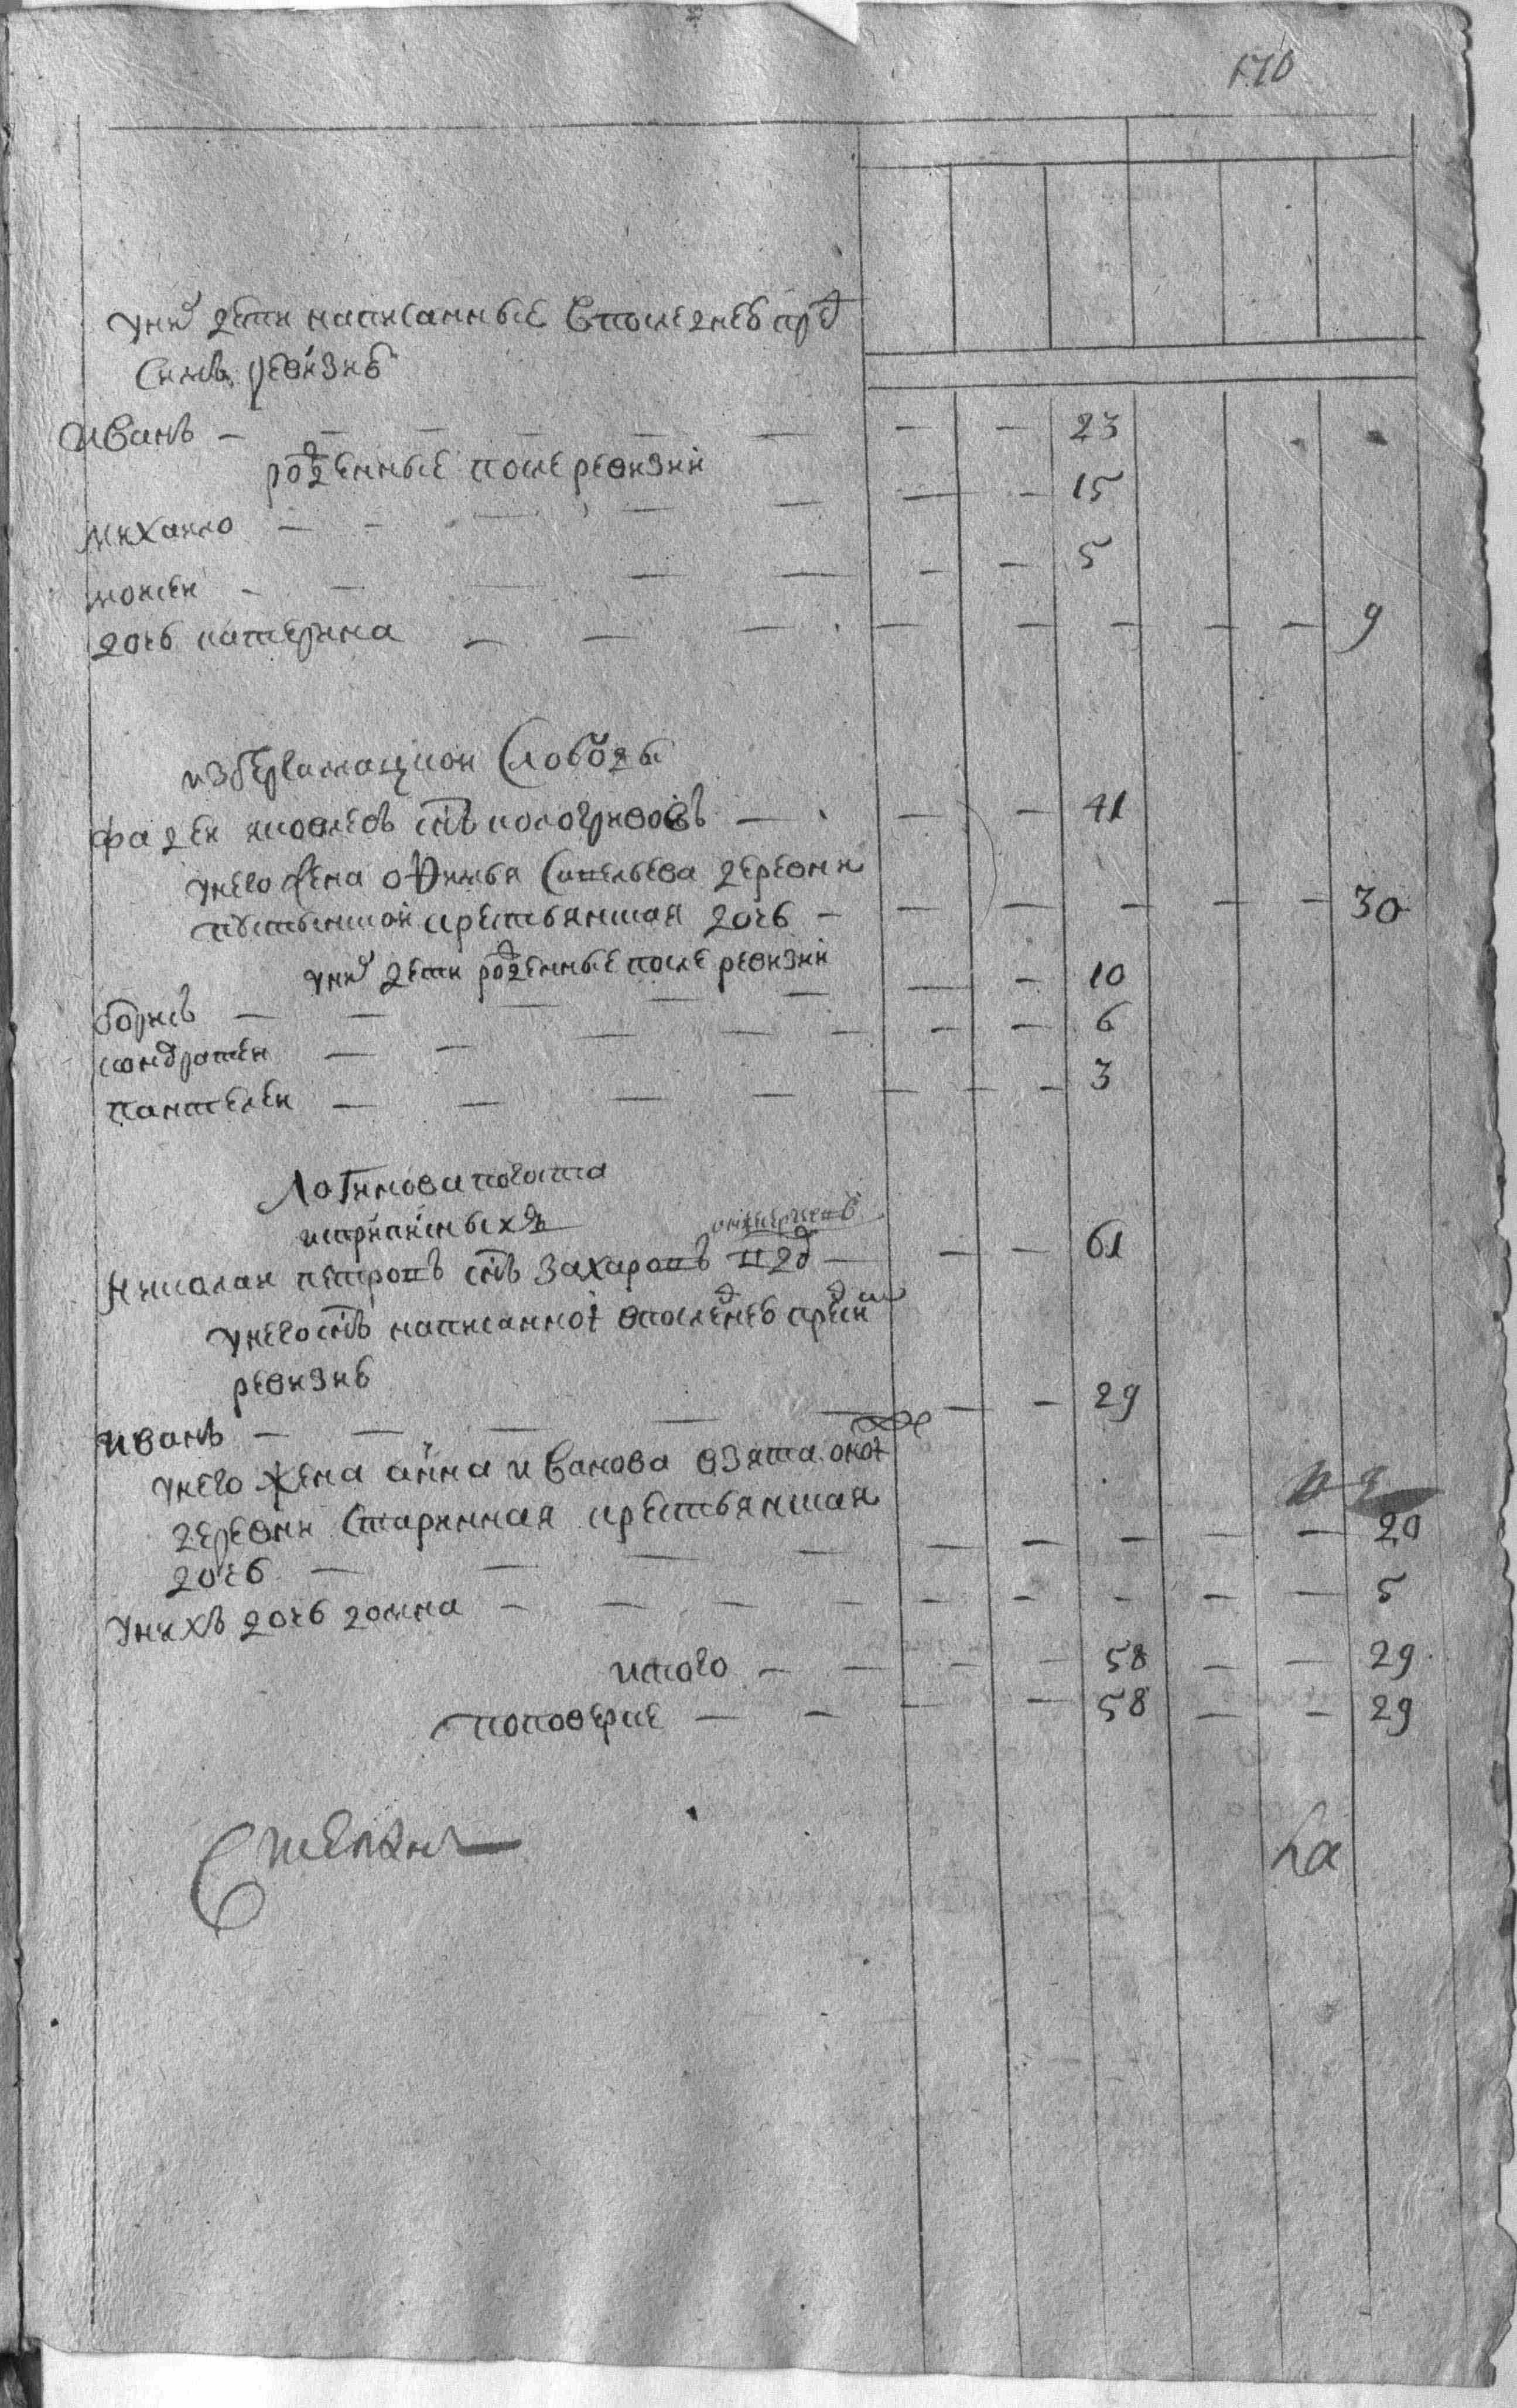 170
У них дети написанные в последней пред
сим ревизие
Иванъ — 23
рожденные после ревизии
Михайло — 15
Моисей — 5
дочь катерина — 9
из слободы
Фадей яковлевъ снъ кологривовъ — 41
у него жена офимья савельева деревни
пустынской крестьянская дочь — 30
у них дети рожденные после ревизии
борисъ — 10
кондратей — 6
пантелей — 3
погоста
Николай петровъ снъ захаровъ — 61
у него снъ написанной в последней пред сим
ревизие
иванъ — 29
у него жена анна иванова взята оной
деревни старинная крестьянская
дочь — 20
у нихъ дочь домна — 5
итого — 58 — 29
по поверке — 58 — 29